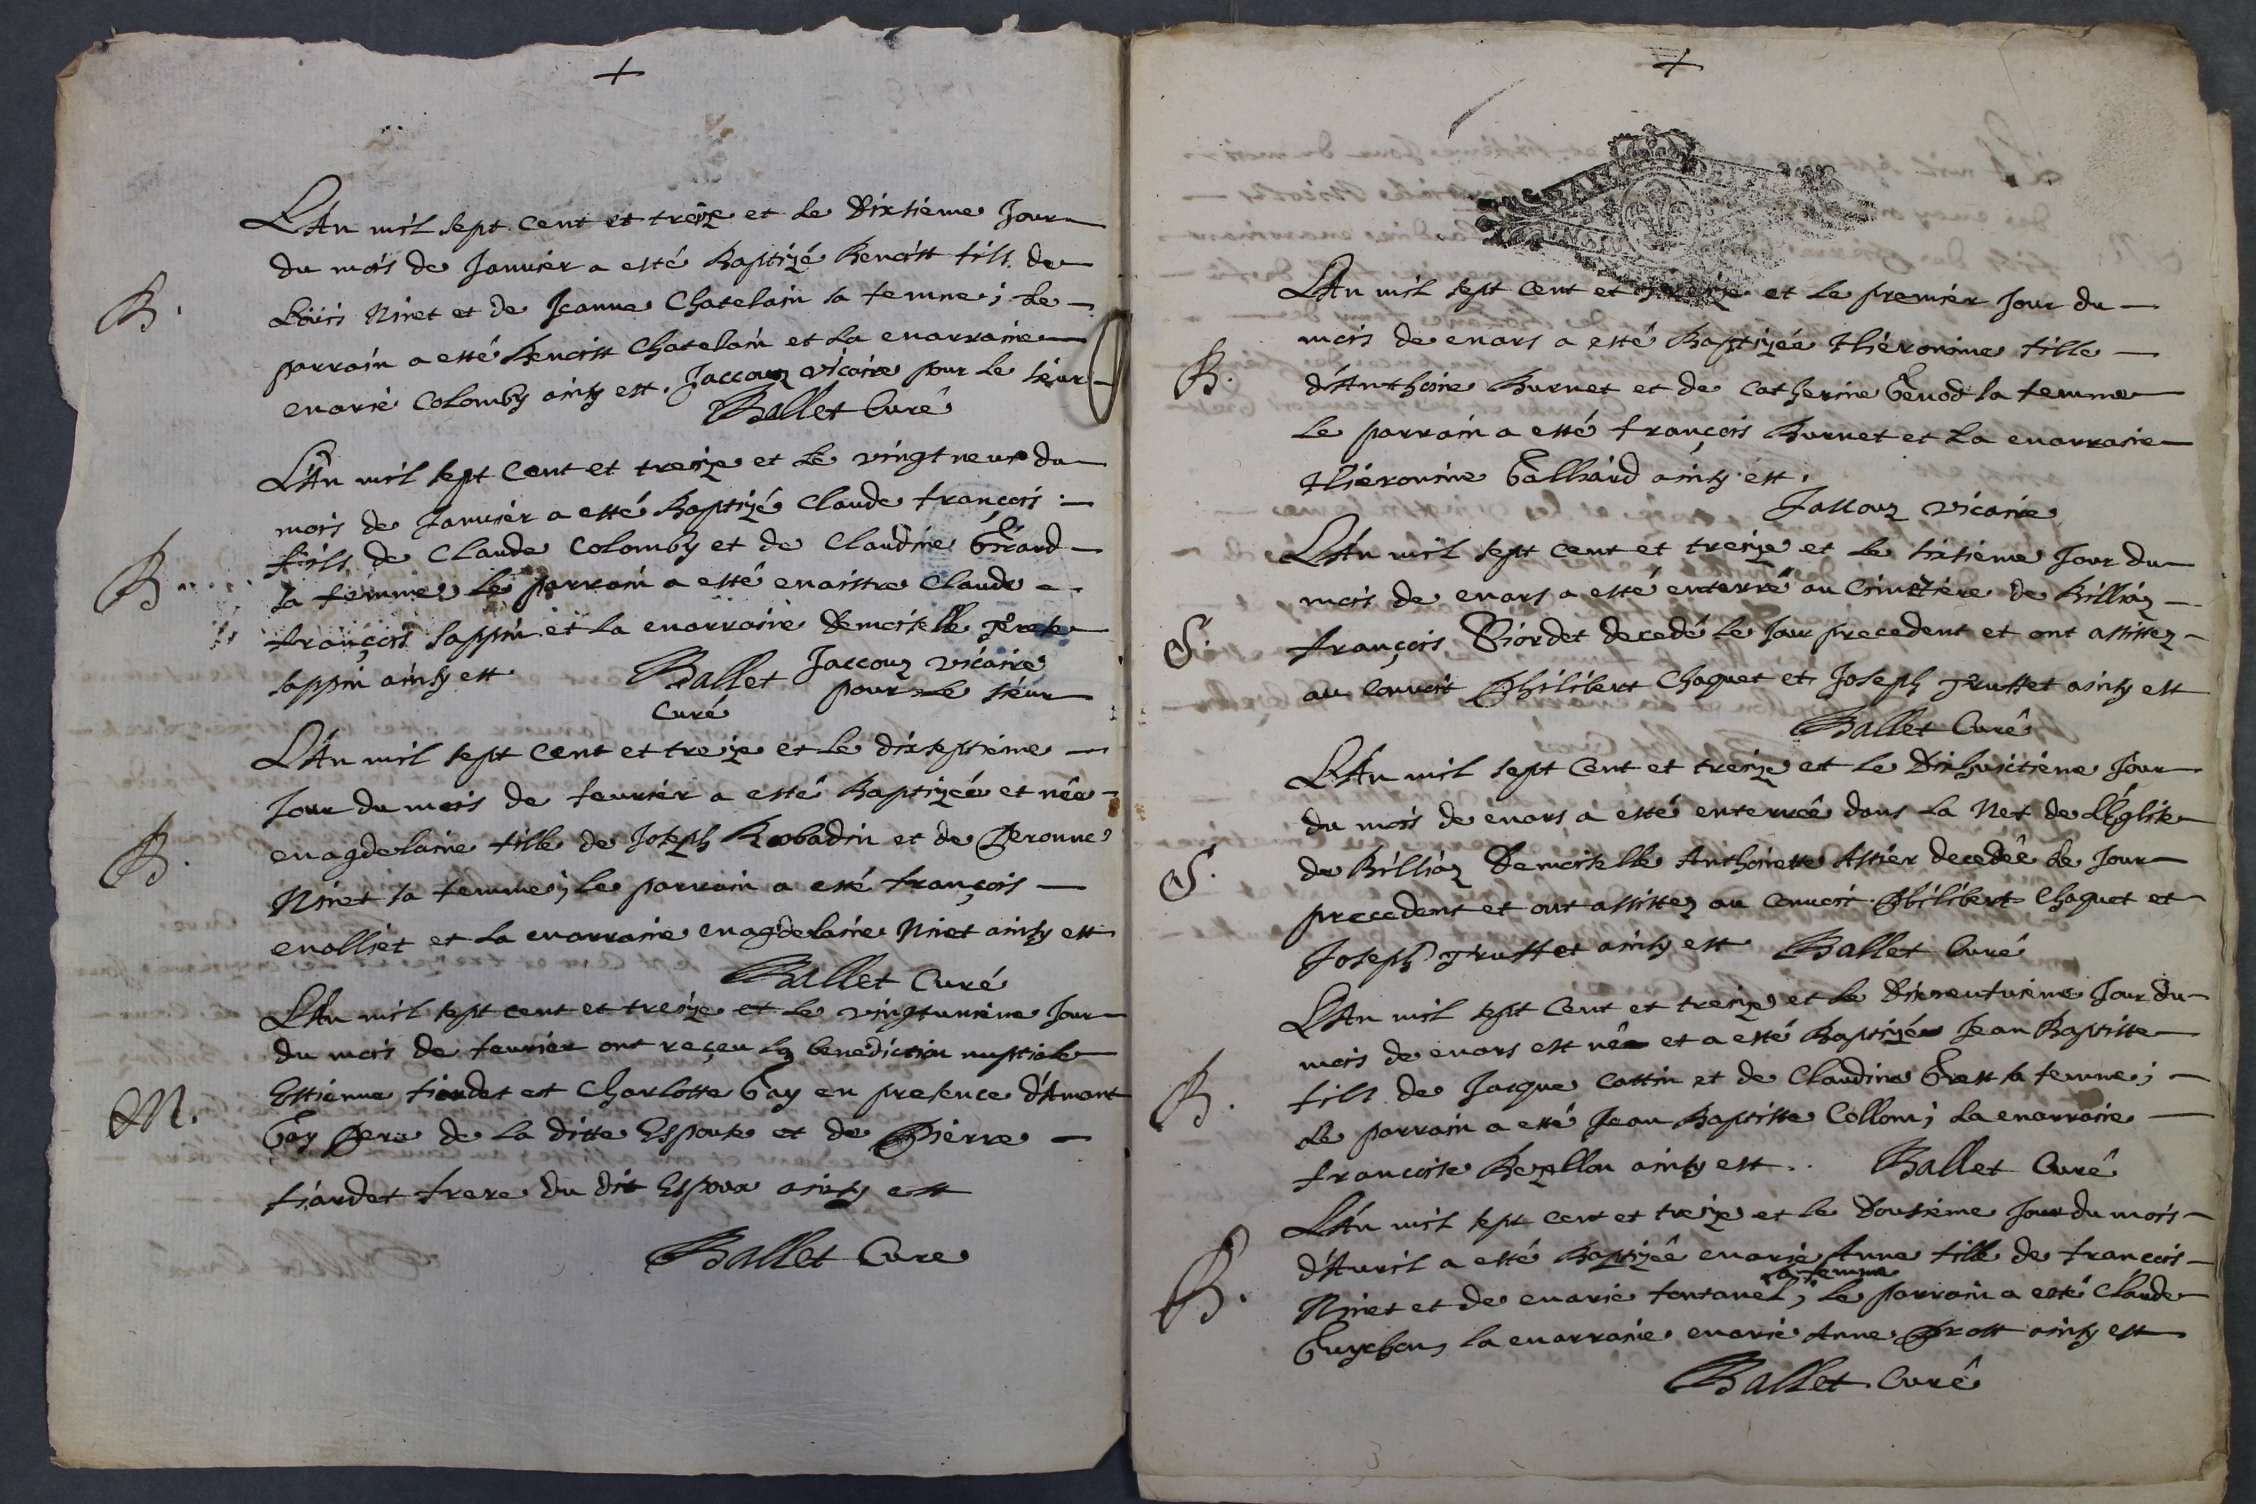 L'An mil sept cent et treize et le Dixsiéme Jour
du mois de Janvier a esté Baptizé Benoist fils de
B.
Loüis Niret et de Jeanne Chatelain sa femme; le
parrain a esté Benoist Chatelain et la marraine
marie Colomby ainsy est. Jaccouz vicaire pour le sieur
Ballet Curé
L'An mil sept Cent et treize et le vingt neuf du
mois de Janvier a esté Baptizé Claude françois
B
fils de Claude Colomby et de Claudine Girard
sa femme; le parrain a esté maistre Claude
françois Sappin et la marraine Demoiselle
sappin ainsy est Ballet Jaccouz vicaire
Curé pour le sieur
L'An mil sept Cent et treize et le dixseptiéme
Jour du mois de feurier a esté Baptizée et née
B.
magdelaine fille de Joseph Robadin et de Peronne
Niret sa femme; le parrain a esté françois
molliet et la marraine magdelaine Niret ainsy est
Ballet Curé
L'An mil sept cent et treize et le vingtuniéme Jour
du mois de feurier ont reçeu la benediction nuptiale
M.
Estienne fiardet et Charlotte Gay en presence d'Amant
Gay Pere de la ditte Espouse et de Pierre
fiardet frere du dit Espoux ainsy est
Ballet Cure
L'An mil sept Cent et treize et le premier Jour du
mois de mars a esté Baptizée Hieronime fille
B.
d'Anthoine Burnet et de Catherine Genod sa femme
le parrain a esté françois Burnet et la marraine
Hieronime Galliard ainsy est.
Jaccouz vicaire
L'An mil sept cent et treize et le sixsieme Jour du
mois de mars a esté enterré au Cimetiére de Billiaz
S.
françois Riordet decedé le Jour precedent et ont assistez
au Convoit Philibert Chaquet et Joseph Truffet ainsy est
Ballet Curé
L'An mil sept Cent et treize et le Dixhuictiéme Jour
du mois de mars a esté enterrée dans la Nef de L'Église
S.
de Billiaz Demoiselle Anthoinette Assier decedée le Jour
precedent et ont assistez au Convoit Philibert Chaquet et
Joseph Truffet ainsy est Ballet Curé
L'An mil sept Cent et treize et le Dixneufuieme Jour du
mois de mars est né et a esté Baptizé Jean Baptiste
B.
fils de Jacque Cottin et de Claudine Grest sa femme;
le parrain a esté Jean Baptiste Collom; la marraine
francoise Bezallon ainsy est. Ballet Curé
L'An mil sept cent et treize et le Dousieme Jour du mois
d'Auril a esté Baptizée marie Anne fille de francois
sa femme
B.
Niret et de marie fontanel; le parrain a esté Claude
Guychon, la marraine marie Anne Prost ainsy est
Ballet Curé